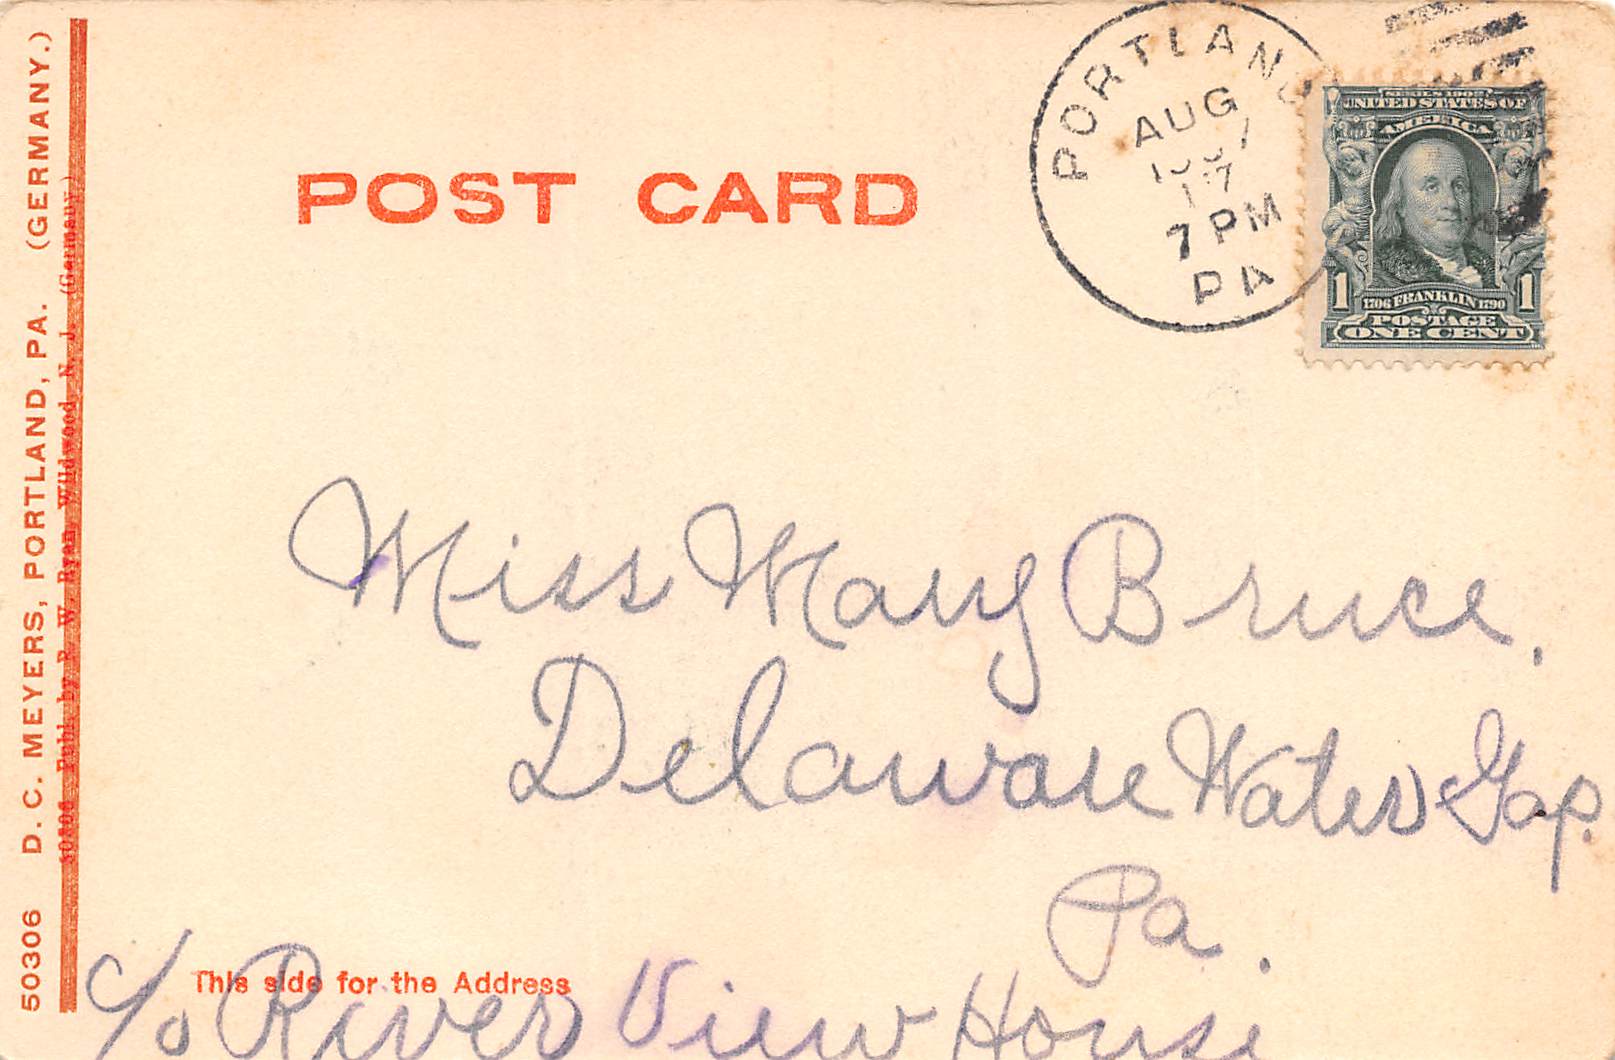 50306 D. C. MEYERS, PORTLAND, PA. (GERMANY.)
Publ. by R. W. Ryan, Wildwood, N. J. (Germany)
POST CARD
PORTLAND
AUG
17
7 PM
PA
SERIES 1902
UNITED STATES OF
AMERICA
1 1
1706 FRANKLIN 1790
POSTAGE
ONE CENT
Miss Mary Bruce,
Delaware Water Gap.
Pa.
This side for the Address
c/o River View House